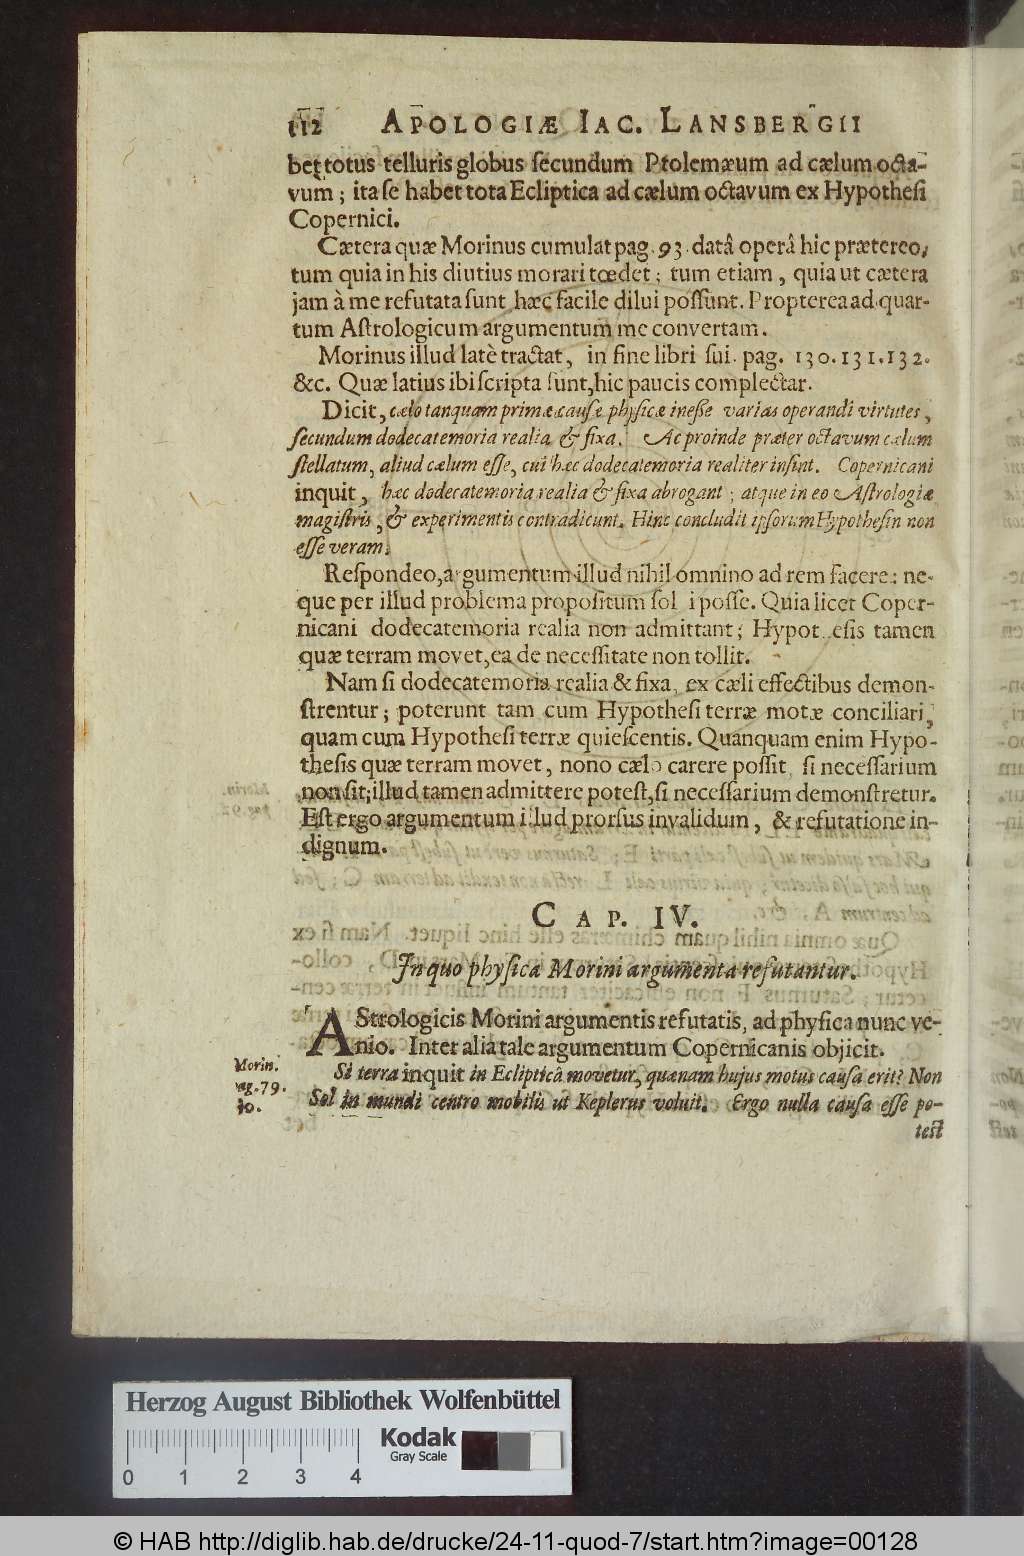 112 APOLOGIÆ IAC. LANSBERGII
bet totus telluris globus ſecundum Ptolemæum ad cælum octa-
vum; ita ſe habet tota Ecliptica ad cælum octavum ex Hypotheſi
Copernici.
Cætera quæ Morinus cumulat pag. 93. datâ operâ hic prætereo,
tum quia in his diutius morari tœdet; tum etiam, quia ut cætera
jam à me refutata ſunt hæc facile dilui poſſunt. Propterea ad quar-
tum Aſtrologicum argumentum me convertam.
Morinus illud latè tractat, in fine libri ſui. pag. 130. 131. 132.
&c. Quæ latius ibi ſcripta ſunt, hic paucis complectar.
Dicit, cælo tanquam primæ cauſæ phyſicæ ineſſe varias operandi virtutes,
ſecundum dodecatemoria realia & fixa. Ac proinde præter octavum cælum
ſtellatum, aliud cælum eſſe, cui hæc dodecatemoria realiter inſint. Copernicani
inquit, hæc dodecatemoria realia & fixa abrogant; atque in eo Aſtrologiæ
magiſtris, & experimentis contradicunt. Hinc concludit ipſorum Hypotheſin non
eſſe veram.
Reſpondeo, argumentum illud nihil omnino ad rem facere: ne-
que per illud problema propoſitum ſol i poſſe. Quia licet Coper-
nicani dodecatemoria realia non admittant; Hypot eſis tamen
quæ terram movet, ea de neceſſitate non tollit.
Nam ſi dodecatemoria realia & fixa, ex cæli effectibus demon-
ſtrentur; poterunt tam cum Hypotheſi terræ motæ conciliari,
quam cum Hypotheſi terræ quieſcentis. Quanquam enim Hypo-
theſis quæ terram movet, nono cælo carere poſſit, ſi neceſſarium
non ſit; illud tamen admittere poteſt, ſi neceſſarium demonſtretur.
Eſt ergo argumentum illud prorſus invalidum, & refutatione in-
dignum.
CAP. IV.
In quo phyſica Morini argumenta refutantur.
AStrologicis Morini argumentis refutatis, ad phyſica nunc ve-
nio. Inter alia tale argumentum Copernicanis objicit.
Morin.
pag. 79.
10.
Si terra inquit in Eclipticâ movetur, quænam hujus motus cauſa erit? Non
Sol in mundi centro mobilis ut Keplerus voluit. Ergo nulla cauſa eſſe po-
teſt
Herzog August Bibliothek Wolfenbüttel
Kodak
Gray Scale
0 1 2 3 4
© HAB http://diglib.hab.de/drucke/24-11-quod-7/start.htm?image=00128